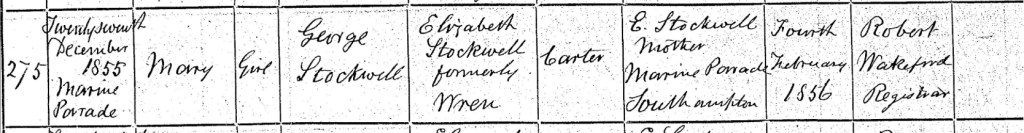 275
Twentyseventh
December
1855
Marine
Parade
Mary
Girl
George
Stockwell
Elizabeth
Stockwell
formerly
Wren
Carter
E. Stockwell
Mother
Marine Parade
Southampton
Fourth
February
1856
Robert
Wakeford
Registrar